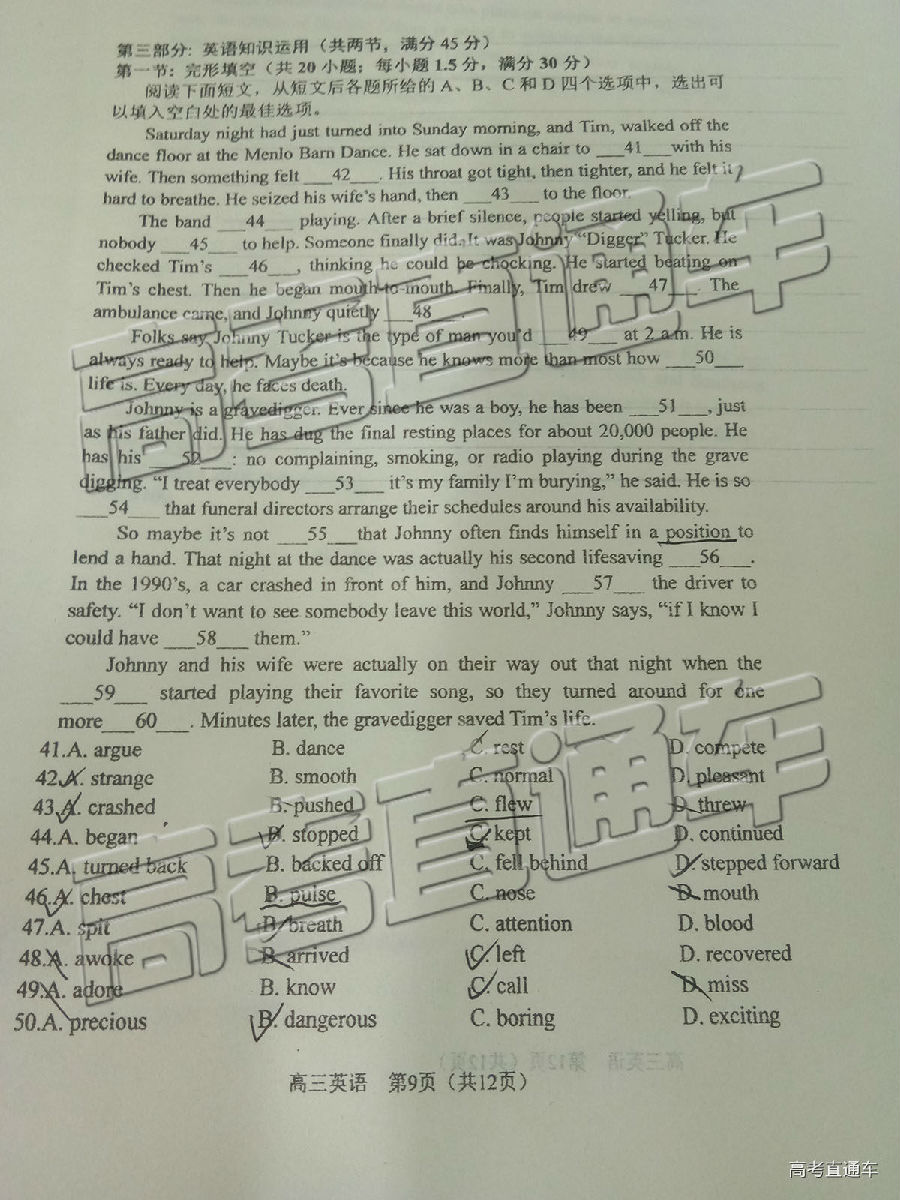 第三部分: 英语知识运用（共两节，满分 45 分）
第一节: 完形填空（共 20 小题；每小题 1.5 分，满分 30 分）
阅读下面短文，从短文后各题所给的 A、B、C 和 D 四个选项中，选出可
以填入空白处的最佳选项。
Saturday night had just turned into Sunday morning, and Tim, walked off the
dance floor at the Menlo Barn Dance. He sat down in a chair to ___41___with his
wife. Then something felt ___42___. His throat got tight, then tighter, and he felt it
hard to breathe. He seized his wife's hand, then ___43___ to the floor.
The band ___44___ playing. After a brief silence, people started yelling, but
nobody ___45___ to help. Someone finally did. It was Johnny "Digger" Tucker. He
checked Tim's ___46___, thinking he could be chocking. He started beating on
Tim's chest. Then he began mouth-to-mouth. Finally, Tim drew ___47___. The
ambulance came, and Johnny quietly ___48___.
Folks say Johnny Tucker is the type of man you'd ___49___ at 2 a.m. He is
always ready to help. Maybe it's because he knows more than most how ___50___
life is. Every day, he faces death.
Johnny is a gravedigger. Ever since he was a boy, he has been ___51___, just
as his father did. He has dug the final resting places for about 20,000 people. He
has his ___52___: no complaining, smoking, or radio playing during the grave
digging. "I treat everybody ___53___ it's my family I'm burying," he said. He is so
___54___ that funeral directors arrange their schedules around his availability.
So maybe it's not ___55___that Johnny often finds himself in a position to
lend a hand. That night at the dance was actually his second lifesaving ___56___.
In the 1990's, a car crashed in front of him, and Johnny ___57___ the driver to
safety. "I don't want to see somebody leave this world," Johnny says, "if I know I
could have ___58___ them."
Johnny and his wife were actually on their way out that night when the
___59___ started playing their favorite song, so they turned around for one
more___60___. Minutes later, the gravedigger saved Tim's life.
41.A. argue B. dance C. rest D. compete
42.A. strange B. smooth C. normal D. pleasant
43.A. crashed B. pushed C. flew D. threw
44.A. began B. stopped C. kept D. continued
45.A. turned back B. backed off C. fell behind D. stepped forward
46.A. chest B. pulse C. nose D. mouth
47.A. spit B. breath C. attention D. blood
48.A. awoke B. arrived C. left D. recovered
49.A. adore B. know C. call D. miss
50.A. precious B. dangerous C. boring D. exciting
高三英语 第9页（共12页）
高考直通车
高考直通车
高考直通车